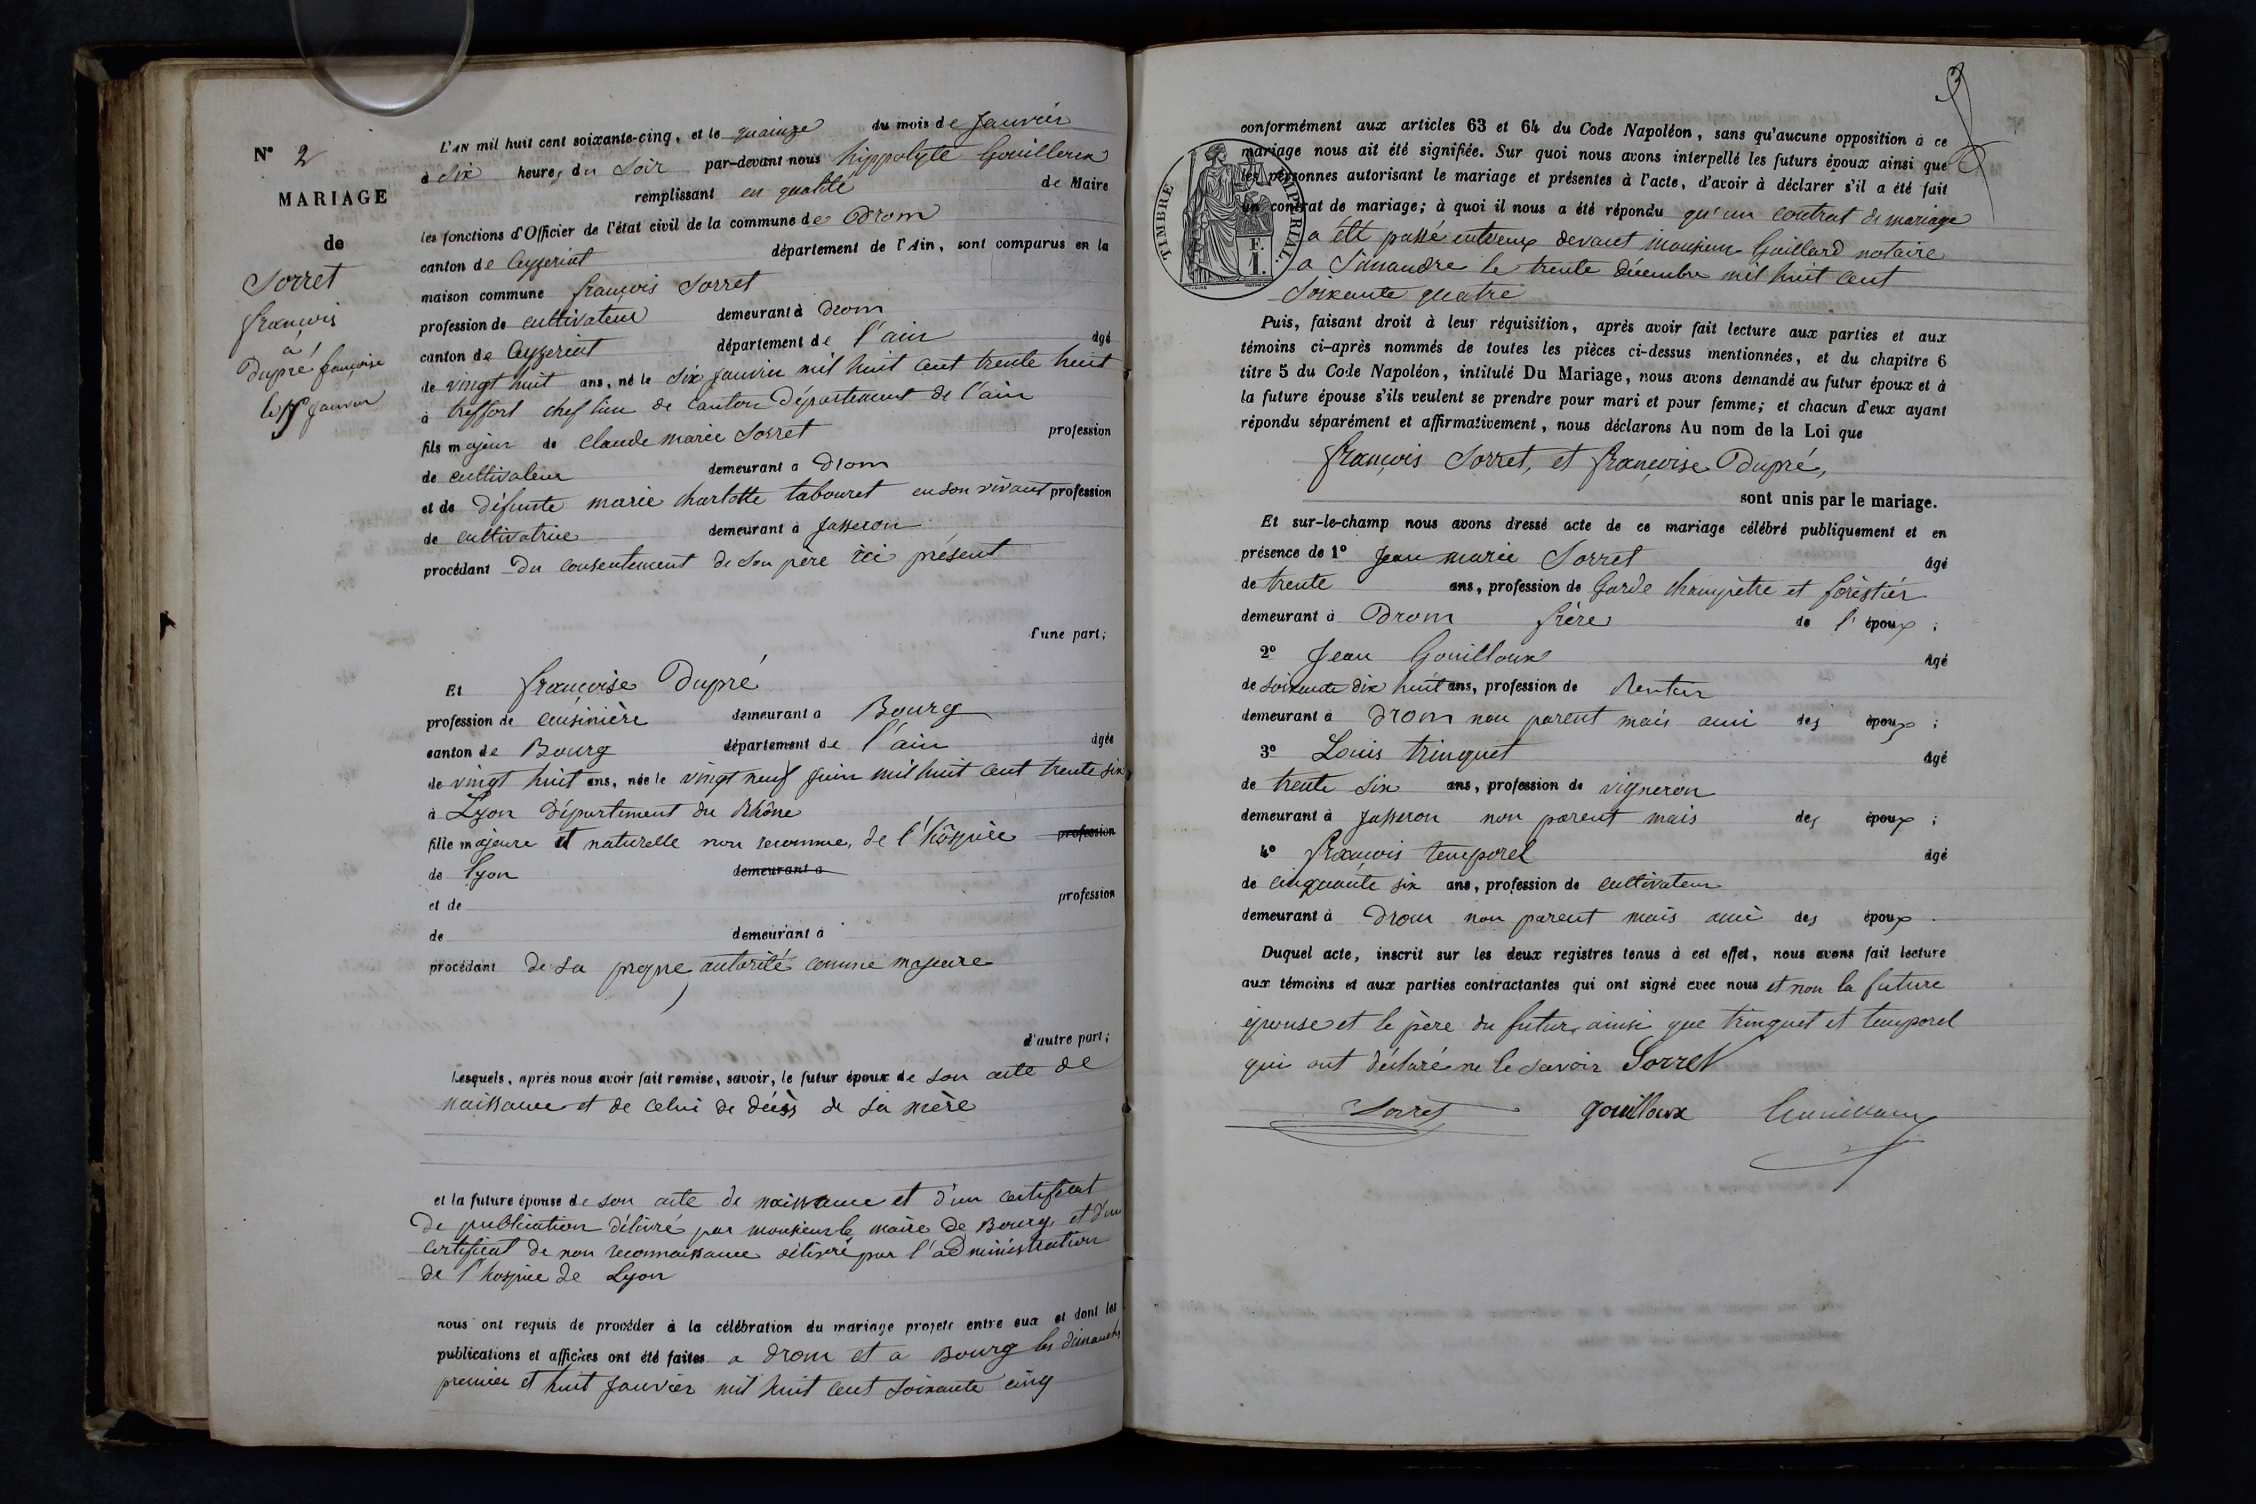 N° 2
MARIAGE
de
Sorret
françois
à
Dupré françoise
le 15 janvier
L'AN mil huit cent soixante-cinq, et le quainze du mois de Janvier
à Six heures du Soir par-devant nous hippolyte Gouilloux
remplissant en qualité de Maire
les fonctions d'Officier de l'état civil de la commune de Drom
canton de Ceyzeriat département de l'Ain, sont comparus en la
maison commune françois Sorret
profession de cultivateur demeurant à Drom
canton de Ceyzeriat département de l'ain âgé
de vingt huit ans, né le Six janvier mil huit cent trente huit
à treffort chef lieu de canton Département de l'ain
fils majeur de claude marie Sorret profession
de cultivateur demeurant à Drom
et de défunte marie charlotte tabouret en son vivant profession
de cultivatrice demeurant à Jasseron
procédant Du consentement de Son père ici présent
d'une part;
Et françoise Dupré
profession de cuisinière demeurant à Bourg
canton de Bourg département de l'ain âgée
de vingt huit ans, née le vingt neuf Juin mil huit cent trente six
à Lyon Département du Rhône
fille majeure et naturelle non reconnue, de l'hospice profession
de Lyon demeurant à
et de profession
de demeurant à
procédant de sa propre autorité comme majeure
d'autre part;
Lesquels, après nous avoir fait remise, savoir, le futur époux de son acte de
naissance et de celui de décès de sa mère
et la future épouse de son acte de naissance et d'un certificat
De publication délivré par monsieur le maire de Bourg et d'un
certificat de non reconnaissance délivré par l'administration
de l'hospice de Lyon
nous ont requis de procéder à la célébration du mariage projeté entre eux et dont les
publications et affiches ont été faites a Drom et a Bourg les dimanches
premier et huit Janvier mil huit cent soixante cinq
3
TIMBRE IMPERIAL
F.
1.
conformément aux articles 63 et 64 du Code Napoléon, sans qu'aucune opposition à ce
mariage nous ait été signifiée. Sur quoi nous avons interpellé les futurs époux ainsi que
les personnes autorisant le mariage et présentes à l'acte, d'avoir à déclarer s'il a été fait
un contrat de mariage; à quoi il nous a été répondu qu'un contrat de mariage
a été passé entreux devant monsieur Gaillard notaire
a Simandre le trente décembre mil huit cent
Soixante quatre
Puis, faisant droit à leur réquisition, après avoir fait lecture aux parties et aux
témoins ci-après nommés de toutes les pièces ci-dessus mentionnées, et du chapitre 6
titre 5 du Code Napoléon, intitulé Du Mariage, nous avons demandé au futur époux et à
la future épouse s'ils veulent se prendre pour mari et pour femme; et chacun d'eux ayant
répondu séparément et affirmativement, nous déclarons Au nom de la Loi que
françois Sorret, et françoise Dupré,
sont unis par le mariage.
Et sur-le-champ nous avons dressé acte de ce mariage célébré publiquement et en
présence de 1° Jean marie Sorret âgé
de trente ans, profession de Garde champêtre et forèstièr
demeurant à Drom frère de l'époux ;
2° Jean Gouilloux âgé
de soixante dix huit ans, profession de Rentier
demeurant à Drom non parent mais ami des époux ;
3° Louis tringuet âgé
de trente six ans, profession de vigneron
demeurant à Jasseron non parent mais des époux ;
4° françois temporel âgé
de cinquante six ans, profession de cultivateur
demeurant à Drom non parent mais ami des époux
Duquel acte, inscrit sur les deux registres tenus à cet effet, nous avons fait lecture
aux témoins et aux parties contractantes qui ont signé avec nous et non la future
épouse et le père du futur, ainsi que tringuet et temporel
qui ont déclaré ne le savoir Sorret
Sorret gouilloux Gouilloux